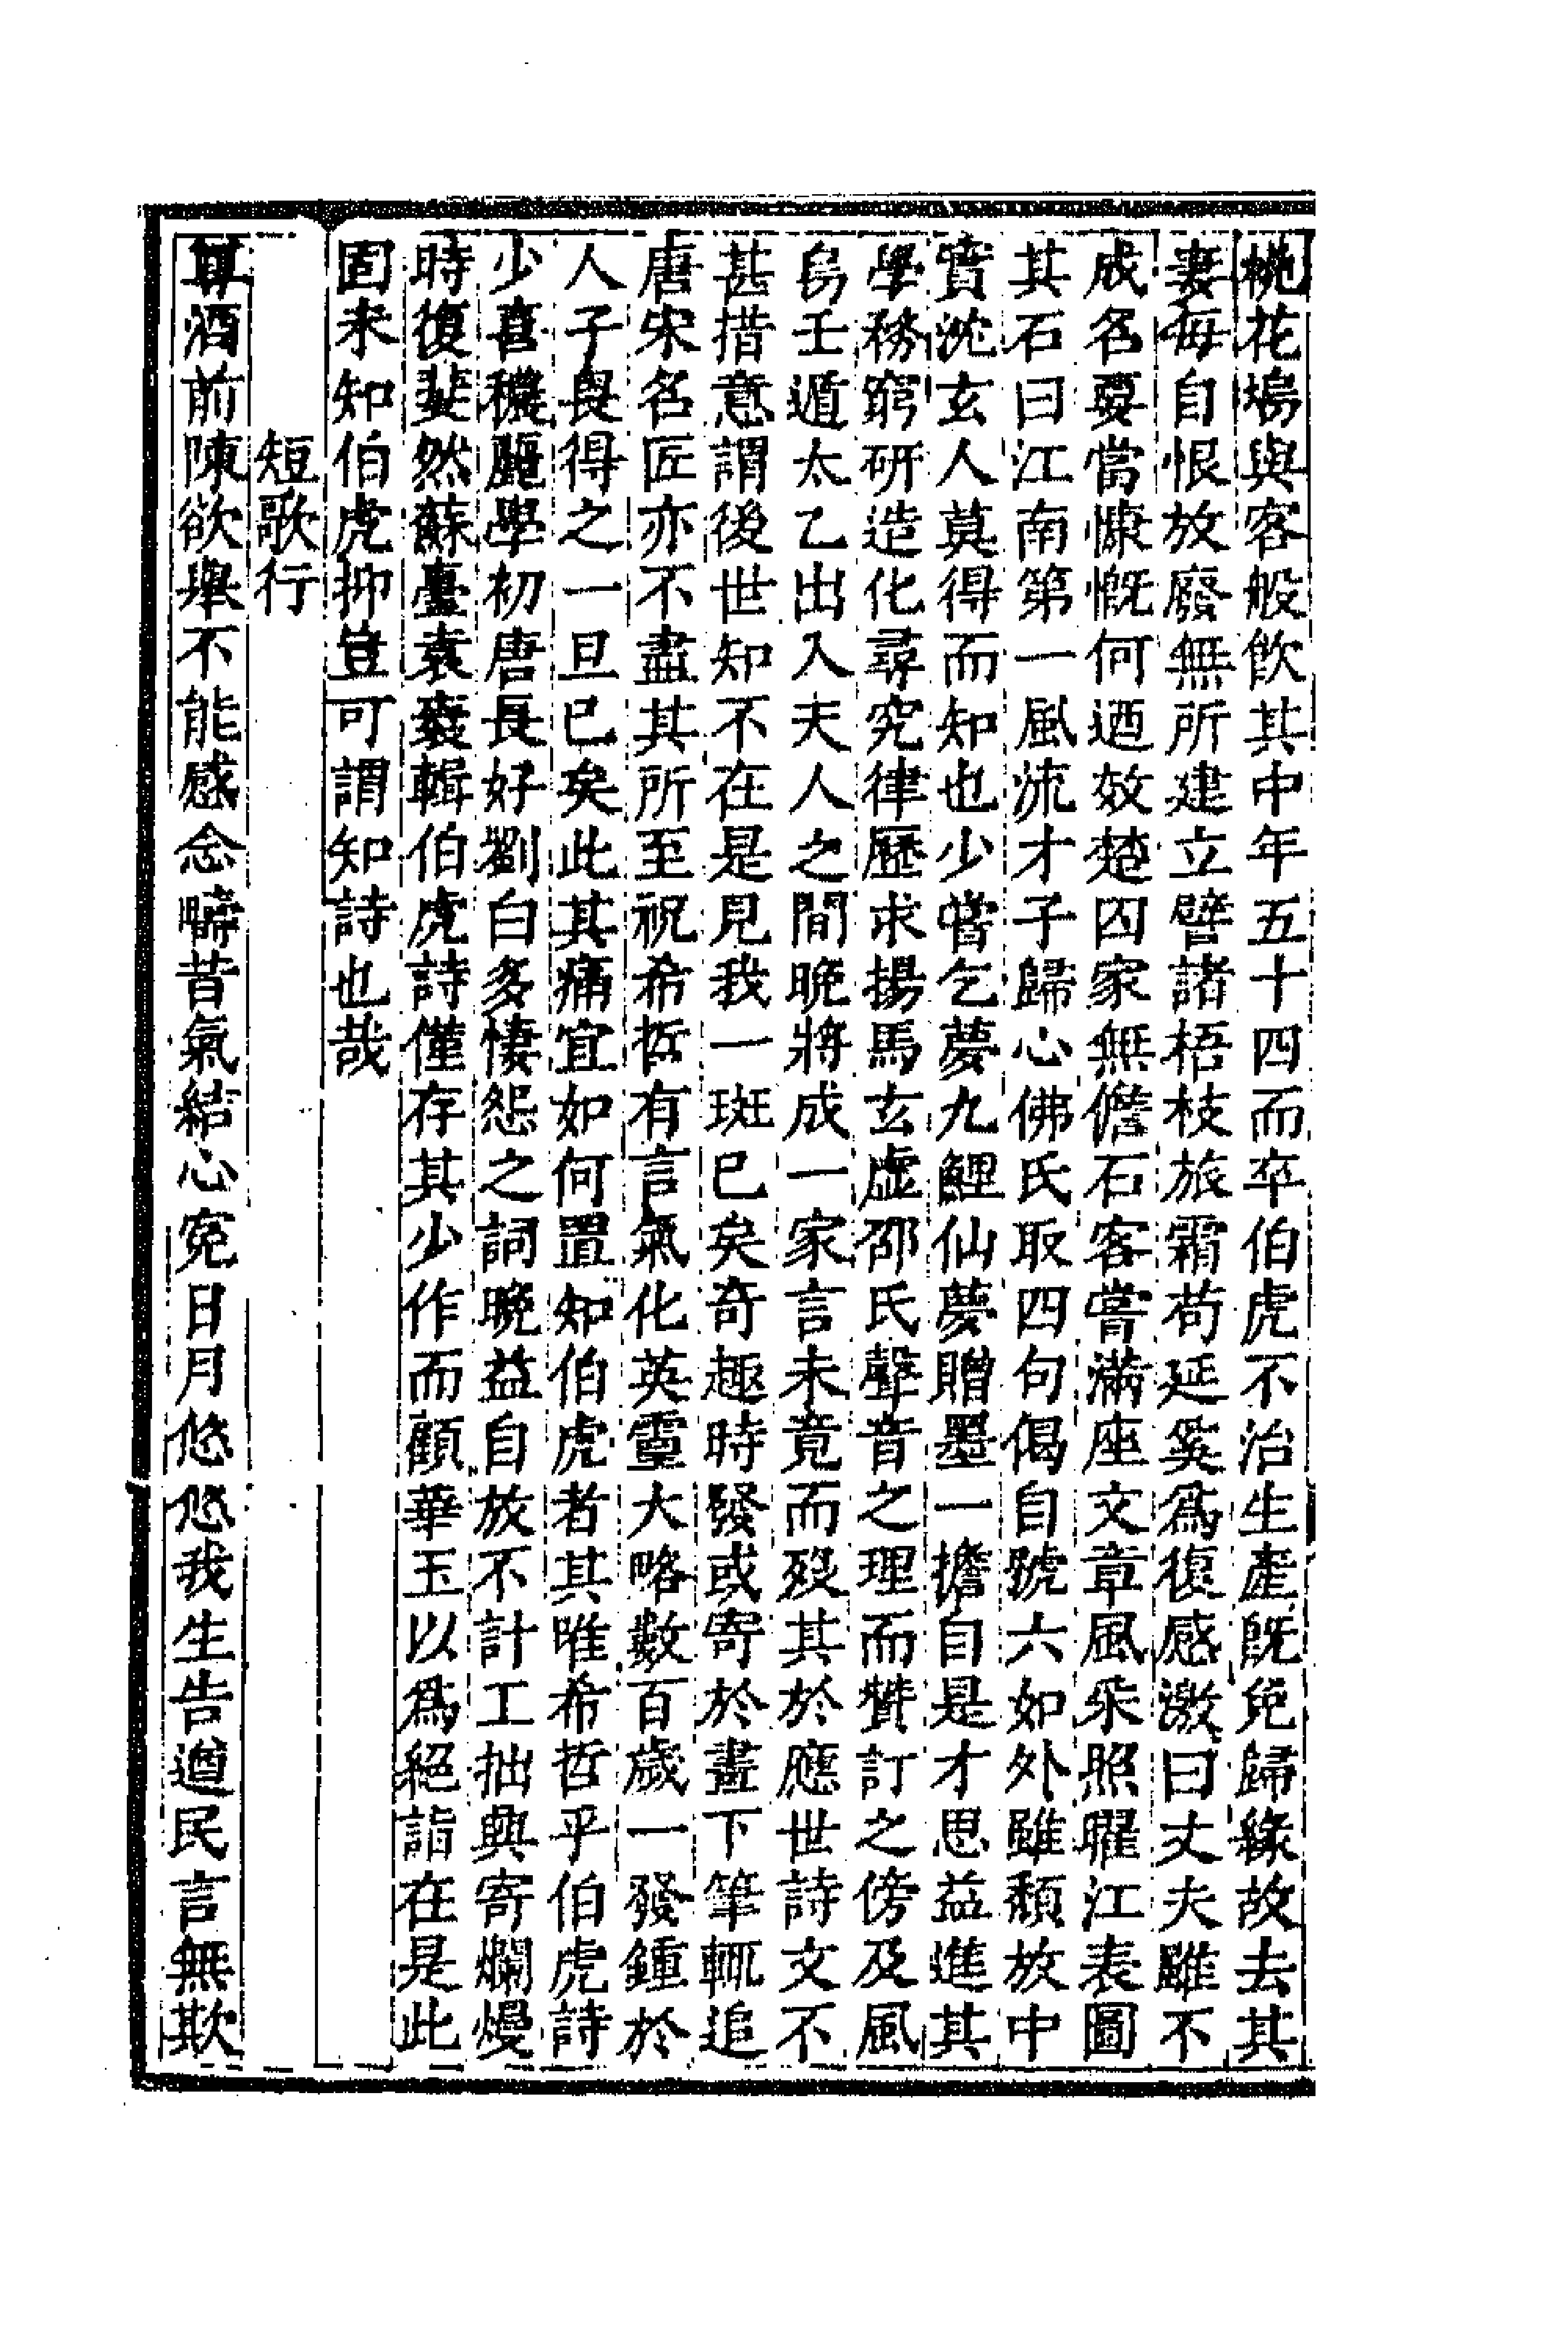 桃花塢與客般飲其中年五十四而卒伯虎不治生產旣免歸緣故去其
妻每自恨放廢無所建立譬諸梧枝旅霜苟延奚爲復感激曰丈夫雖不
成名要當慷慨何迺效楚囚家無儋石客嘗滿座文章風采照曜江表圖
其石曰江南第一風流才子歸心佛氏取四句偈自號六如外雖頹放中
實沈玄人莫得而知也少嘗乞夢九鯉仙夢贈墨一擔自是才思益進其
學務窮硏造化尋究律歷求揚馬玄虛邵氏聲音之理而贊訂之傍及風
鳥壬遁太乙出入天人之間晚將成一家言未竟而歿其於應世詩文不
甚措意謂後世知不在是見我一斑已矣奇趣時發或寄於畫下筆輒追
唐宋名匠亦不盡其所至祝希哲有言氣化英靈大略數百歲一發鍾於
人子畏得之一旦已矣此其痛宜如何置知伯虎者其唯希哲乎伯虎詩
少喜穠麗學初唐長好劉白多悽怨之詞晚益自放不計工拙興寄爛熳
時復斐然蘇臺袁袠輯伯虎詩僅存其少作而顧華玉以爲絕詣在是此
固未知伯虎抑豈可謂知詩也哉
短歌行
尊酒前陳欲舉不能感念疇昔氣結心寃日月悠悠我生告遒民言無欺